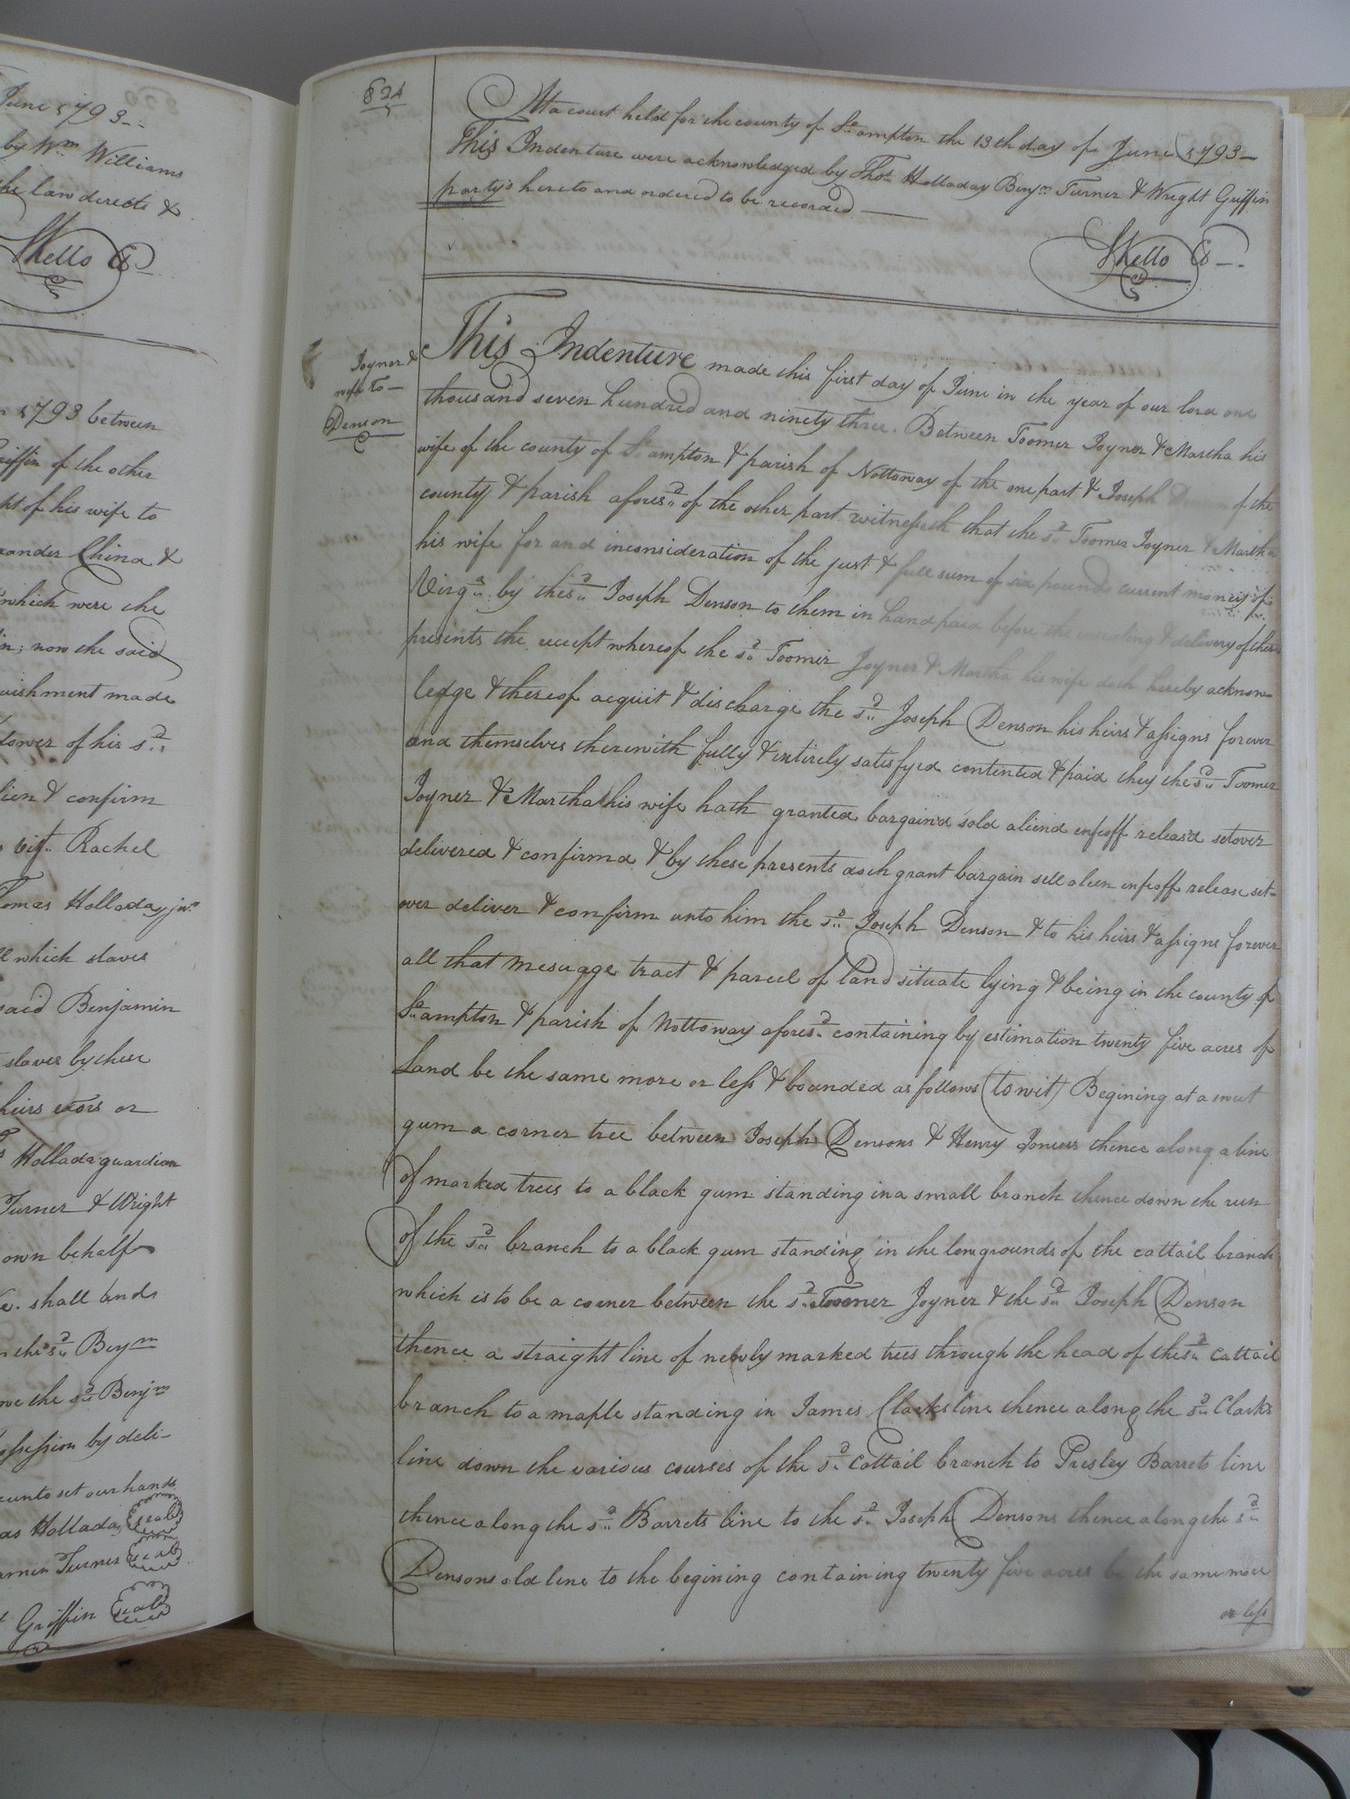 June 1793 --
by Wm Williams
the law directs &
SKello Cs
1793 between
Griffin of the other
ht of his wife to
xander China &
which were the
n; now the said
uishment made
dower of his sd
lien & confirm
vizt. Rachel
Tomas Holladay junr
ll which slaves
said Benjamin
slaves by these
heirs exors or
Hollada guardian
Turner & Wright
own behalf
shall and
n the sd Benjn
we the sd Benjn
ossession by deli-
eunto set our hands
as Hollada seal
amin Turner seal
t Griffin seal
824
At a court held for the county of So.ampton the 13th day of June 1793 -
This Indenture were acknowledged by Thos. Holladay Benjn Turner & Wright Griffin
party's hereto and ordered to be recorded
SKello Cs --
Joyner &
wife to -
Denson
This Indenture made this first day of June in the year of our lord one
thousand seven hundred and ninety three. Between Toomer Joyner & Martha his
wife of the county of So.ampton & parish of Nottoway of the one part & Joseph Denson of the
county & parish aforesd. of the other part witnesseth that the sd. Toomer Joyner & Martha
his wife for and inconsideration of the just & full sum of six pounds current money of
Virga. by the sd. Joseph Denson to them in hand paid before the ensealing & delivery of these
presents the receipt whereof the sd. Toomer Joyner & Martha his wife doth hereby acknow-
ledge & thereof acquit & discharge the sd. Joseph Denson his heirs & assigns forever
and themselves therewith fully & intirely satisfyed contented & paid they the sd. Toomer
Joyner & Martha his wife hath granted bargain'd sold aliend enfeoff releas'd setover
delivered & confirmd & by these presents doth grant bargain sell alien enfeoff release set-
over deliver & confirm unto him the sd. Joseph Denson & to his heirs & assigns forever
all that mesuage tract & parcel of land situate lying & being in the county of
So.ampton & parish of Nottoway aforesd. containing by estimation twenty five acres of
Land be the same more or less & bounded as follows (to wit) Begining at a sweet
gum a corner tree between Joseph Densons & Henry Joners thence along a line
of marked trees to a black gum standing in a small branch thence down the run
of the sd. branch to a black gum standing in the low grounds of the cattail branch
which is to be a corner between the sd. Toomer Joyner & the sd. Joseph Denson
thence a straight line of newly marked trees through the head of the sd. cattail
branch to a maple standing in James Clarks line thence along the sd. Clarks
line down the various courses of the sd. Cattail branch to Presley Barrets line
thence along the sd. Barrets line to the sd. Joseph Densons thence along the sd.
Densons old line to the begining containing twenty five acres be the same more
or less